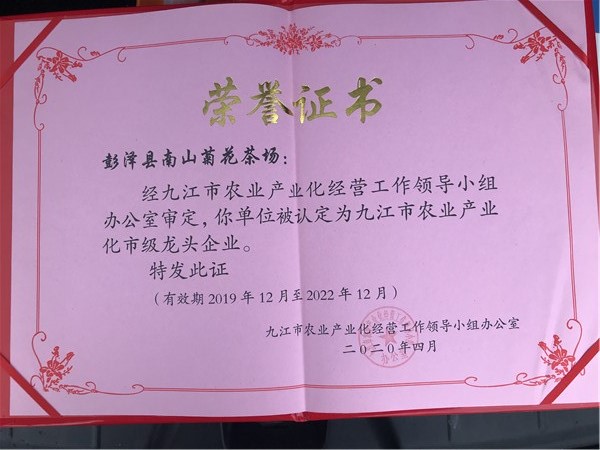 荣誉证书
彭泽县南山菊花茶场：
经九江市农业产业化经营工作领导小组
办公室审定，你单位被认定为九江市农业产业
化市级龙头企业。
特发此证
（有效期2019年12月至2022年12月）
九江市农业产业化经营工作领导小组办公室
二0二0年四月